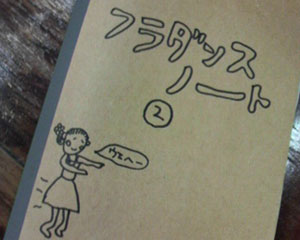 フラダンス
ノート
②
ウエヘー